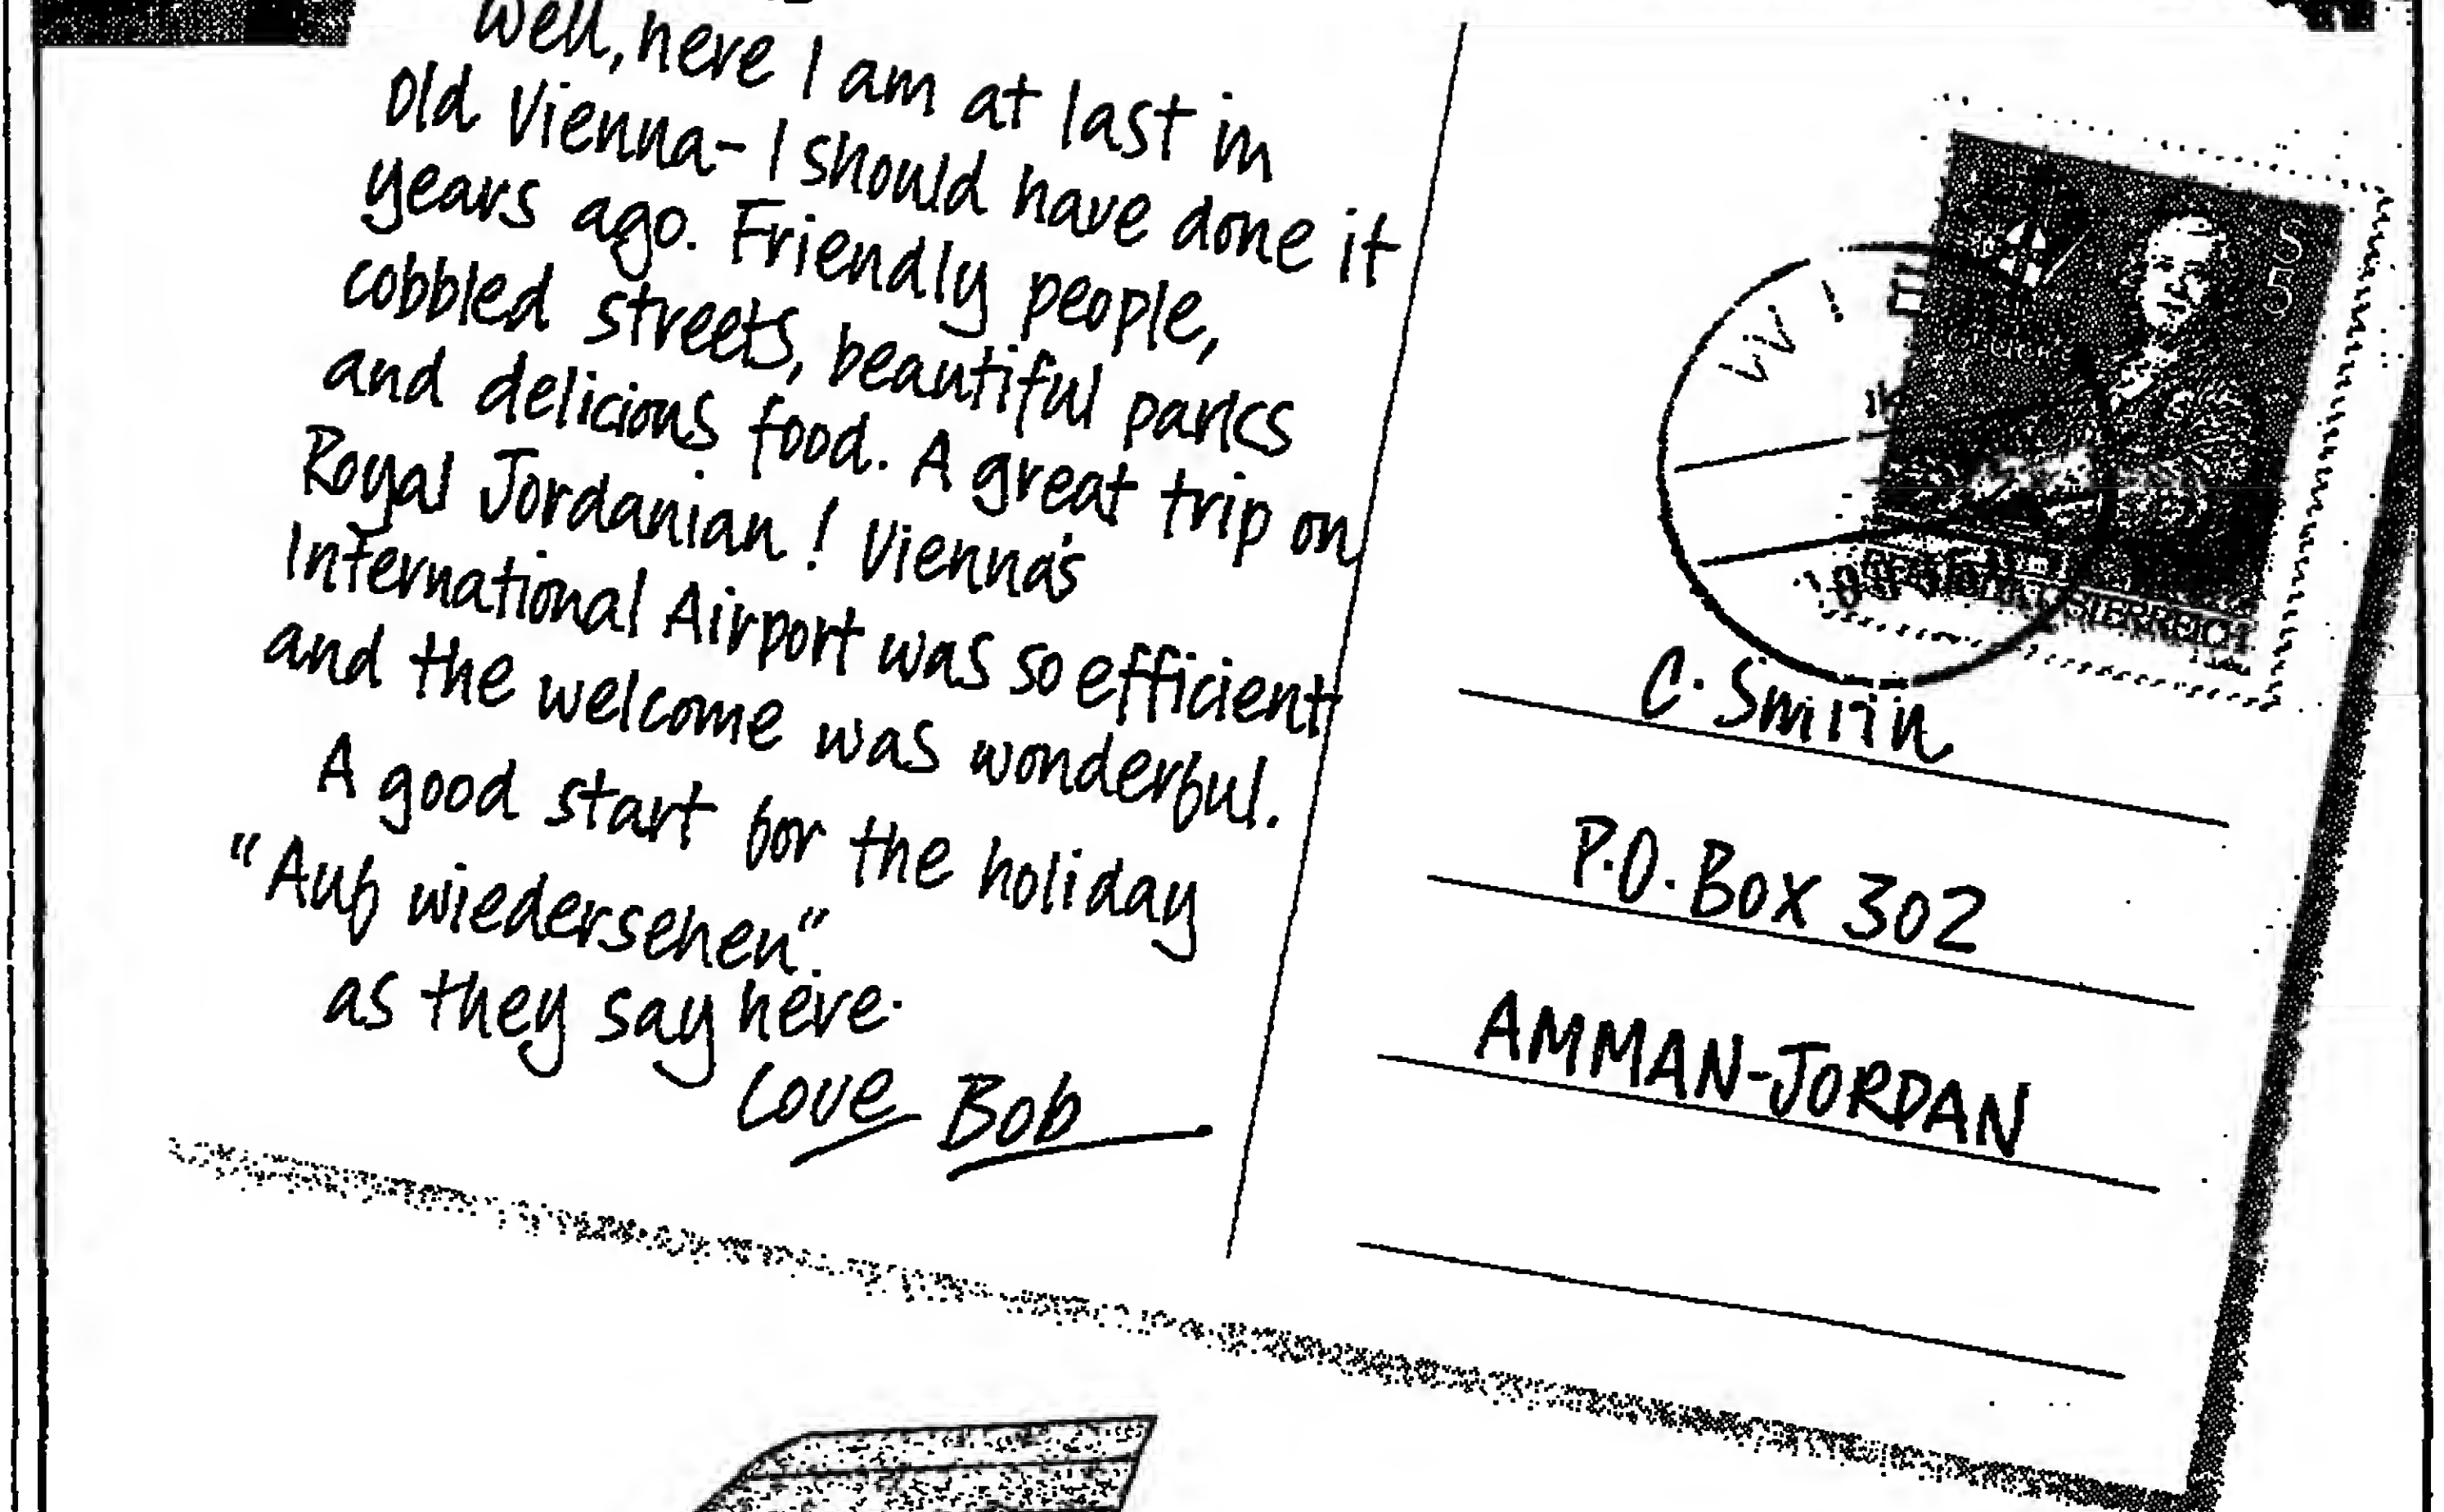 Well, here I am at last in
Old Vienna - I should have done it
years ago. Friendly people,
cobbled streets, beautiful parks
and delicious food. A great trip on
Royal Jordanian! Vienna's
International Airport was so efficient
and the welcome was wonderful.
A good start for the holiday
"Auf wiedersehen".
as they say here.
Love Bob
S
5
C. Smith
P.O. Box 302
AMMAN-JORDAN